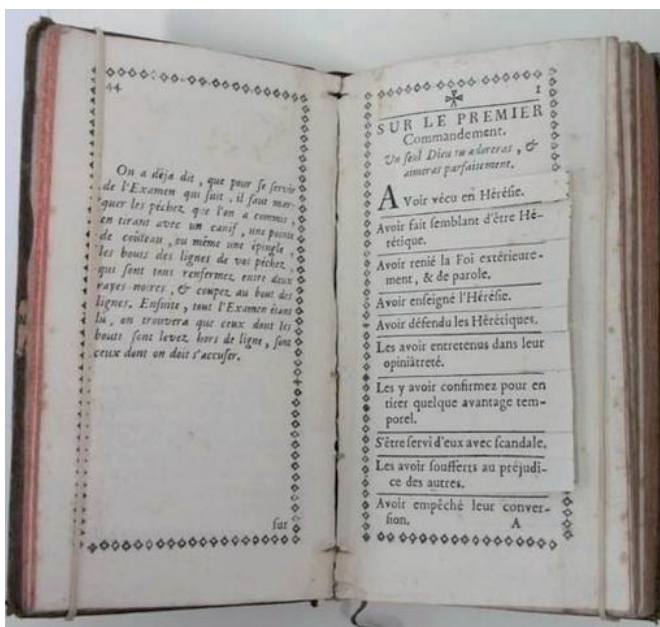 44
On a déja dit, que pour se servir
de l'Examen qui suit, il faut mar-
quer les péchez que l'on a commis,
en tirant avec un canif, une pointe
de coûteau, ou même une épingle,
les bouts des lignes de vos péchez,
qui sont tous renfermez entre deux
rayes noires, & coupez au bout des
lignes. Ensuite, tout l'Examen étant
lu, on trouvera que ceux dont les
bouts sont levez hors de ligne, sont
ceux dont on doit s'accuser.
sur
1
SUR LE PREMIER
Commandement.
Un seul Dieu tu adoreras, &
aimeras parfaitement.
AVoir vécu en Hérésie.
Avoir fait semblant d'être Hé-
rétique.
Avoir renié la Foi extérieure-
ment, & de parole.
Avoir enseigné l'Hérésie.
Avoir défendu les Hérétiques.
Les avoir entretenus dans leur
opiniâtreté.
Les y avoir confirmez pour en
tirer quelque avantage tem-
porel.
S'être servi d'eux avec scandale.
Les avoir soufferts au préjudi-
ce des autres.
Avoir empêché leur conver-
sion. A